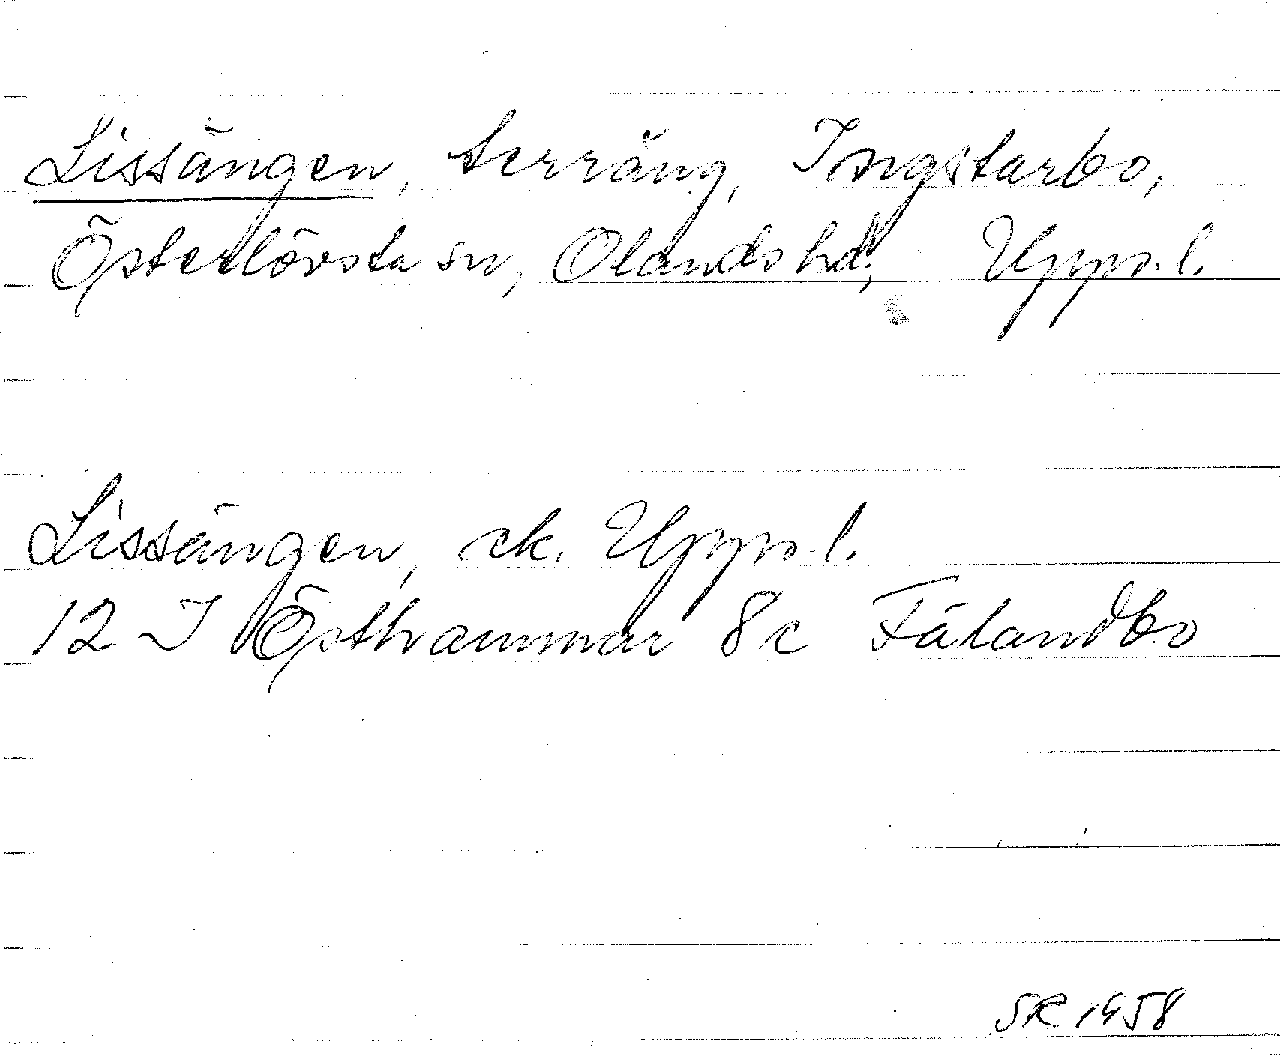 Lissängen, terräng, Ingstarbo,
Österlövsta sn, Olands hd, Upps. l.
Lissängen, ek. Upps. l.
12 I Östhammar 8c Fälandbo
SR 1958